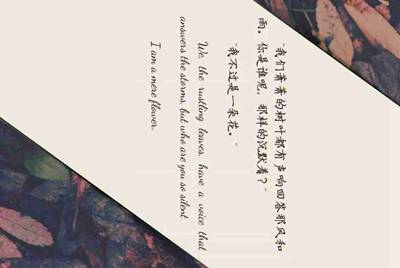 “我们萧萧的树叶都有声响回答那风和
雨。你是谁呢，那样的沉默着？”
“我不过是一朵花。”
We, the rustling leaves, have a voice that
answers the storms, but who are you so silent
I am a mere flower.